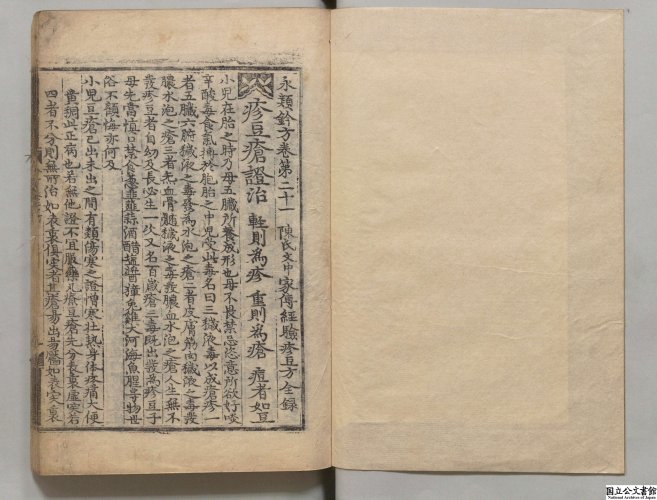 永類鈐方卷第二十一 陳氏文中家傳經驗疹豆方全録
疹豆瘡證治 輕則為疹 重則為瘡 痘者如豆
小兒在胎之時乃母五臟所養成形也母不畏禁忌恣意所欲好啖
辛酸毒食氣摶於胞胎之中兒受此毒名曰三穢液毒以成瘡疹一
者五臟六腑穢液之毒發為水泡之瘡二者皮膚筋肉穢液之毒發
膿水泡之瘡三者氣血骨髓穢液之毒發膿血水泡之瘡人生無不
發疹豆者自幼及長必生一次又名百歲瘡二毒既出發為疹豆子
母先當慎口禁食葱韮薤蒜酒醋塩醬獐兔雞犬河海魚腥等物世
俗不顧悔亦何及
小兒豆瘡已出未出之間有類傷寒之證憎寒壯熱身体疼痛大便
黄稠此正病也若無他證不宜服藥凡療豆瘡先分表裏虛實若
四者不分則無所治如表裏俱實者其瘡易出易靨如表實裏
国立公文書館
National Archives of Japan